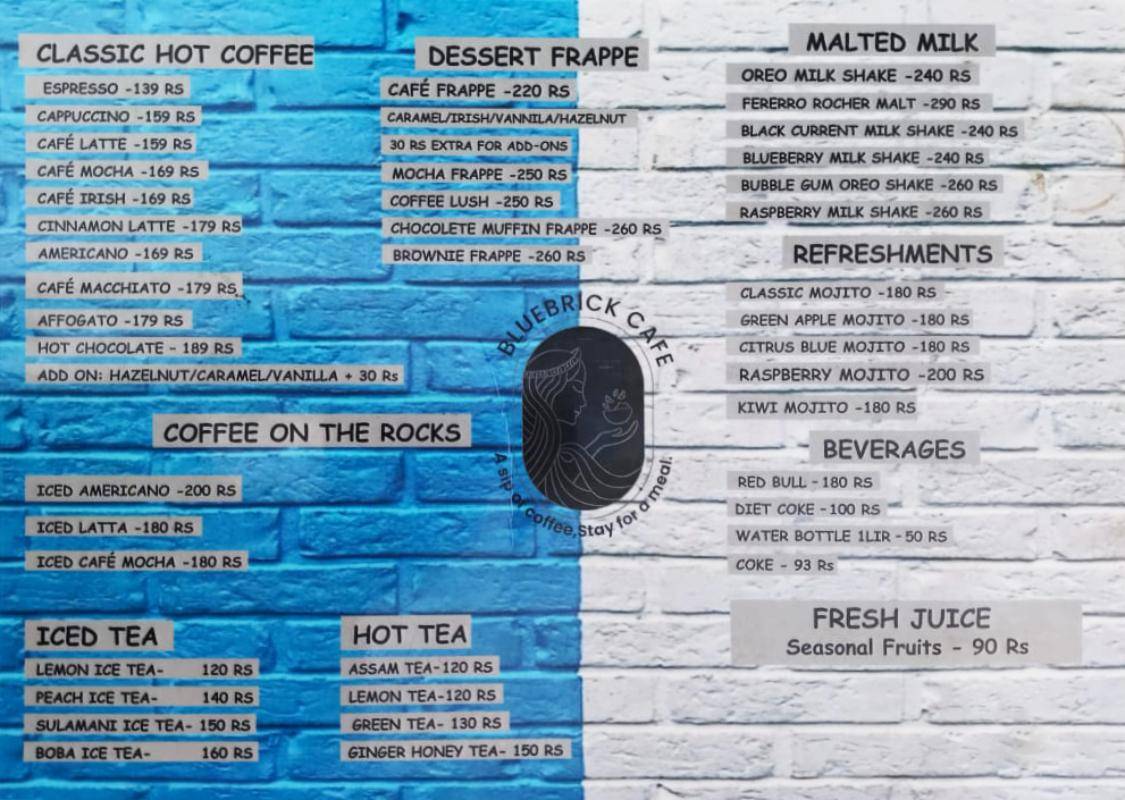 CLASSIC HOT COFFEE
ESPRESSO -139 RS
CAPPUCCINO -159 RS
CAFÉ LATTE -159 RS
CAFÉ MOCHA -169 RS
CAFÉ IRISH -169 RS
CINNAMON LATTE -179 RS
AMERICANO -169 RS
CAFÉ MACCHIATO -179 RS
AFFOGATO -179 RS
HOT CHOCOLATE - 189 RS
ADD ON: HAZELNUT/CARAMEL/VANILLA + 30 Rs
COFFEE ON THE ROCKS
ICED AMERICANO -200 RS
ICED LATTA -180 RS
ICED CAFÉ MOCHA -180 RS
ICED TEA
LEMON ICE TEA- 120 RS
PEACH ICE TEA- 140 RS
SULAMANI ICE TEA- 150 RS
BOBA ICE TEA- 160 RS
DESSERT FRAPPE
CAFÉ FRAPPE -220 RS
CARAMEL/IRISH/VANNILA/HAZELNUT
30 RS EXTRA FOR ADD-ONS
MOCHA FRAPPE -250 RS
COFFEE LUSH -250 RS
CHOCOLETE MUFFIN FRAPPE -260 RS
BROWNIE FRAPPE -260 RS
BLUEBRICK CAFE
A sip of coffee,Stay for a meal.
HOT TEA
ASSAM TEA-120 RS
LEMON TEA-120 RS
GREEN TEA- 130 RS
GINGER HONEY TEA- 150 RS
MALTED MILK
OREO MILK SHAKE -240 RS
FERERRO ROCHER MALT -290 RS
BLACK CURRENT MILK SHAKE -240 RS
BLUEBERRY MILK SHAKE -240 RS
BUBBLE GUM OREO SHAKE -260 RS
RASPBERRY MILK SHAKE -260 RS
REFRESHMENTS
CLASSIC MOJITO -180 RS
GREEN APPLE MOJITO -180 RS
CITRUS BLUE MOJITO -180 RS
RASPBERRY MOJITO -200 RS
KIWI MOJITO -180 RS
BEVERAGES
RED BULL - 180 RS
DIET COKE -100 RS
WATER BOTTLE 1LIR - 50 RS
COKE - 93 Rs
FRESH JUICE
Seasonal Fruits - 90 Rs